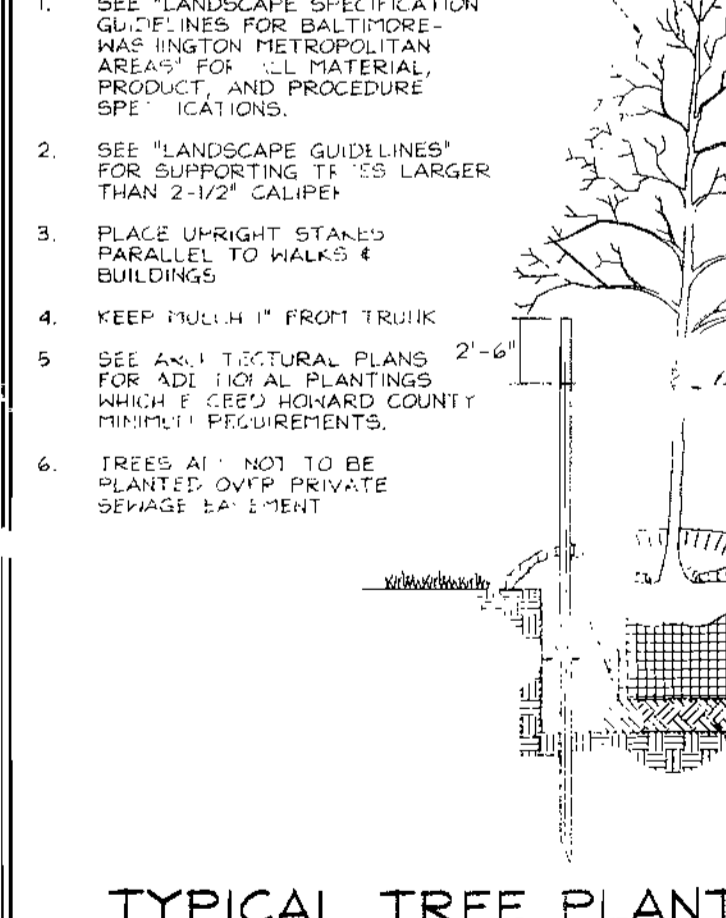 1. SEE "LANDSCAPE SPECIFICATION
GUIDELINES FOR BALTIMORE-
WASHINGTON METROPOLITAN
AREAS" FOR ALL MATERIAL,
PRODUCT, AND PROCEDURE
SPECIFICATIONS.
2. SEE "LANDSCAPE GUIDELINES"
FOR SUPPORTING TREES LARGER
THAN 2-1/2" CALIPER
3. PLACE UPRIGHT STAKES
PARALLEL TO WALKS &
BUILDINGS
4. KEEP MULCH 1" FROM TRUNK
5 SEE ARCHITECTURAL PLANS
FOR ADDITIONAL PLANTINGS
WHICH EXCEED HOWARD COUNTY
MINIMUM REQUIREMENTS.
6. TREES ARE NOT TO BE
PLANTED OVER PRIVATE
SEWAGE EASEMENT
2'-6"
TYPICAL TREE PLANT